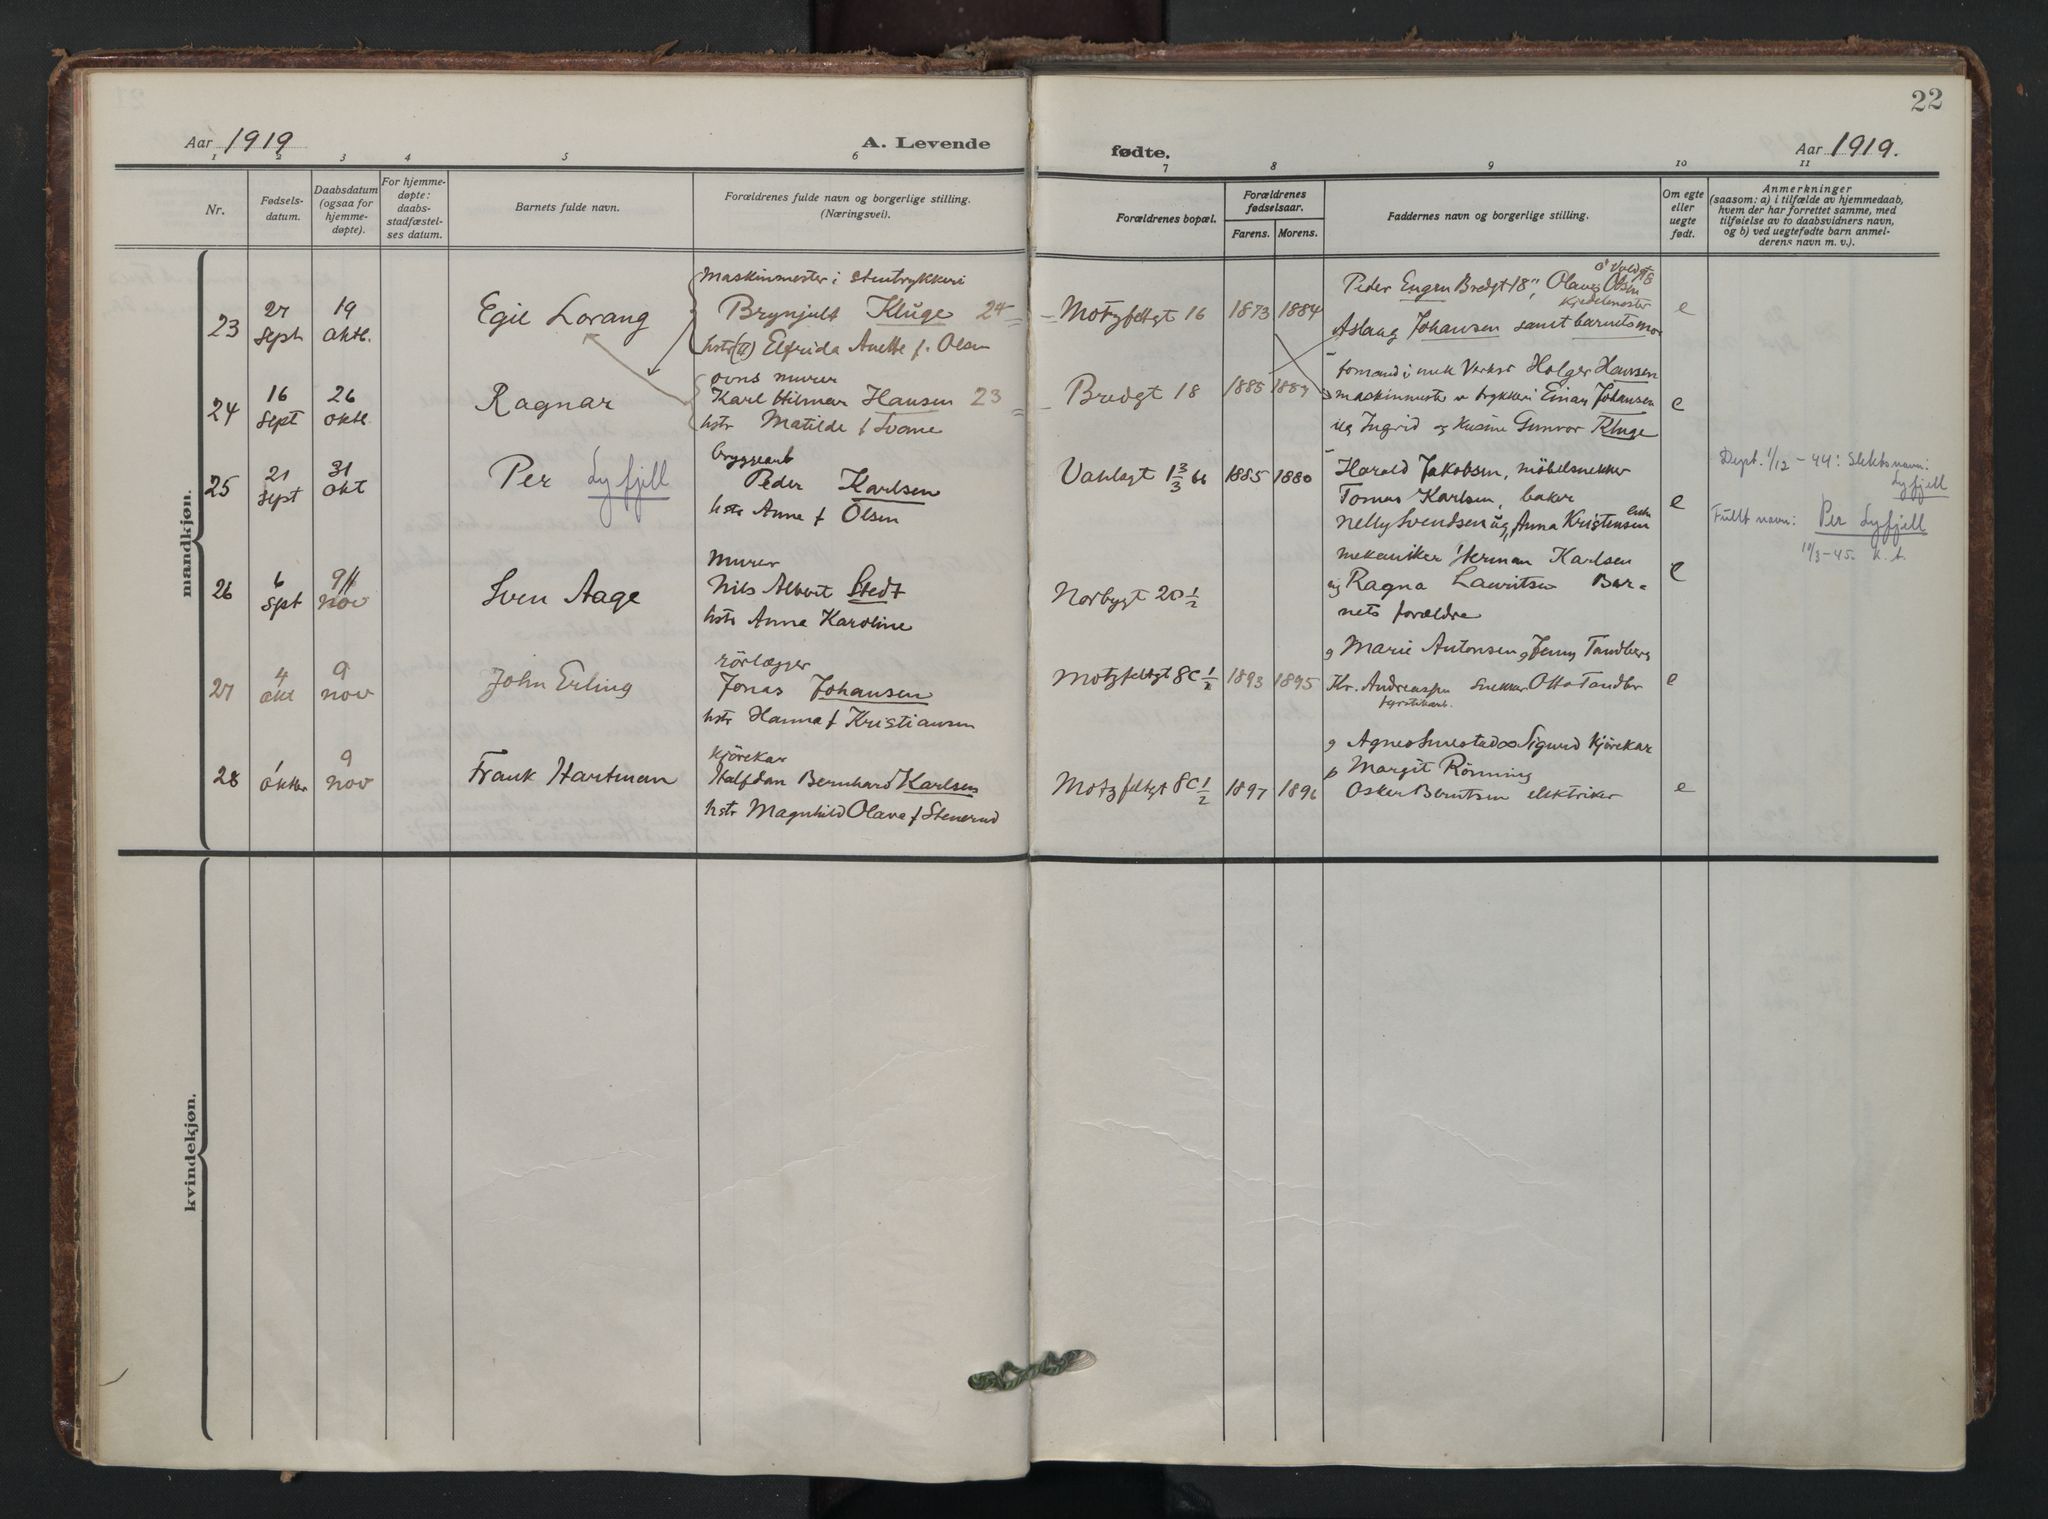 22
Aar 1919
A. Levende
fødte.
Aar 1919.
1 2 3 4 5 6 7 8 9 10 11
Nr.
Fødsels-
datum.
Daabsdatum
(ogsaa for
hjemme-
døpte).
For hjemme-
døpte:
daabs-
stadfæstel-
ses datum.
Barnets fulde navn.
Forældrenes fulde navn og borgerlige stilling.
(Næringsvei).
Forældrenes bopæl.
Forældrenes
fødselsaar.
Farens. Morens.
Faddernes navn og borgerlige stilling.
Om egte
eller
uegte
født.
Anmerkninger
(saasom: a) i tilfælde av hjemmedaab,
hvem der har forrettet samme, med
tilføielse av to daabsvidners navn,
og b) ved uegtefødte barn anmel-
derens navn m. v.).
mandkjøn.
23
27
Sept
19
oktb.
Egil Lorang
Maskinmester i Stentrykkeri
Brynjulf Kluge 24
hstr (II) Elfrida Anette f. Olsen
Motzfeltgt 16
1873 1884
Peder Engen Bredgt 18, Olaves Olsen
Kjedelmester
Aslaug Johansen samt barnets mor
e
24
16
Sept
26
oktb.
Ragnar
ovns murer
Karl Hilmar Hansen 23
hstr Matilde f Svane
Bredgt 18
1885 1883
formand i mek Verkst Holger Hansen
maskinmester v trykkeri Einar Johansen
ug Ingrid og Kusine Gunvor Kluge
e
25
21
Sept
31
okt
Per Lyfjell
bryggearb
Peder Karlsen
hstr Anne f Olsen
Vahlsgt 1 3/3
1885 1880
Harald Jakobsen, möbelsnekker
Tomas Karlsen, baker
Nelly Svendsen ug, Anna Kristensen enke
e
Dept. 1/12 - 44: Slektsnavn:
Lyfjell
Fullt navn: Per Lyfjell
10/3-45. K. A.
26
6
Spt
9
nov
Sven Aage
murer
Nils Albert Stedt
hstr Anna Karoline
Norbygt 20 1/2
mekaniker Herman Karlsen
ug Ragna Lauritsen Bar-
nets forældre
e
27
4
okt
9
nov
John Erling
rörlægger
Jonas Johansen
hstr Hanna f Kristiansen
Motzfeltgt 8C 1/2
1893 1895
g Marie Antonsen g Jenny Tandberg
Kr. Andreassen snekker Otto Tandbr
e
28
1
oktbr
9
nov
Frank Hartman
kjörekar
Halfdan Bernhard Karlsen
hstr Magnhild Olava f Stenerud
Motzfeltgt 8C 1/2
1897 1896
g Agnes Smestad og Sigurd kjörekar
p Margit Rönning
Oskar Berntsen elektriker
e
kvindekjøn.